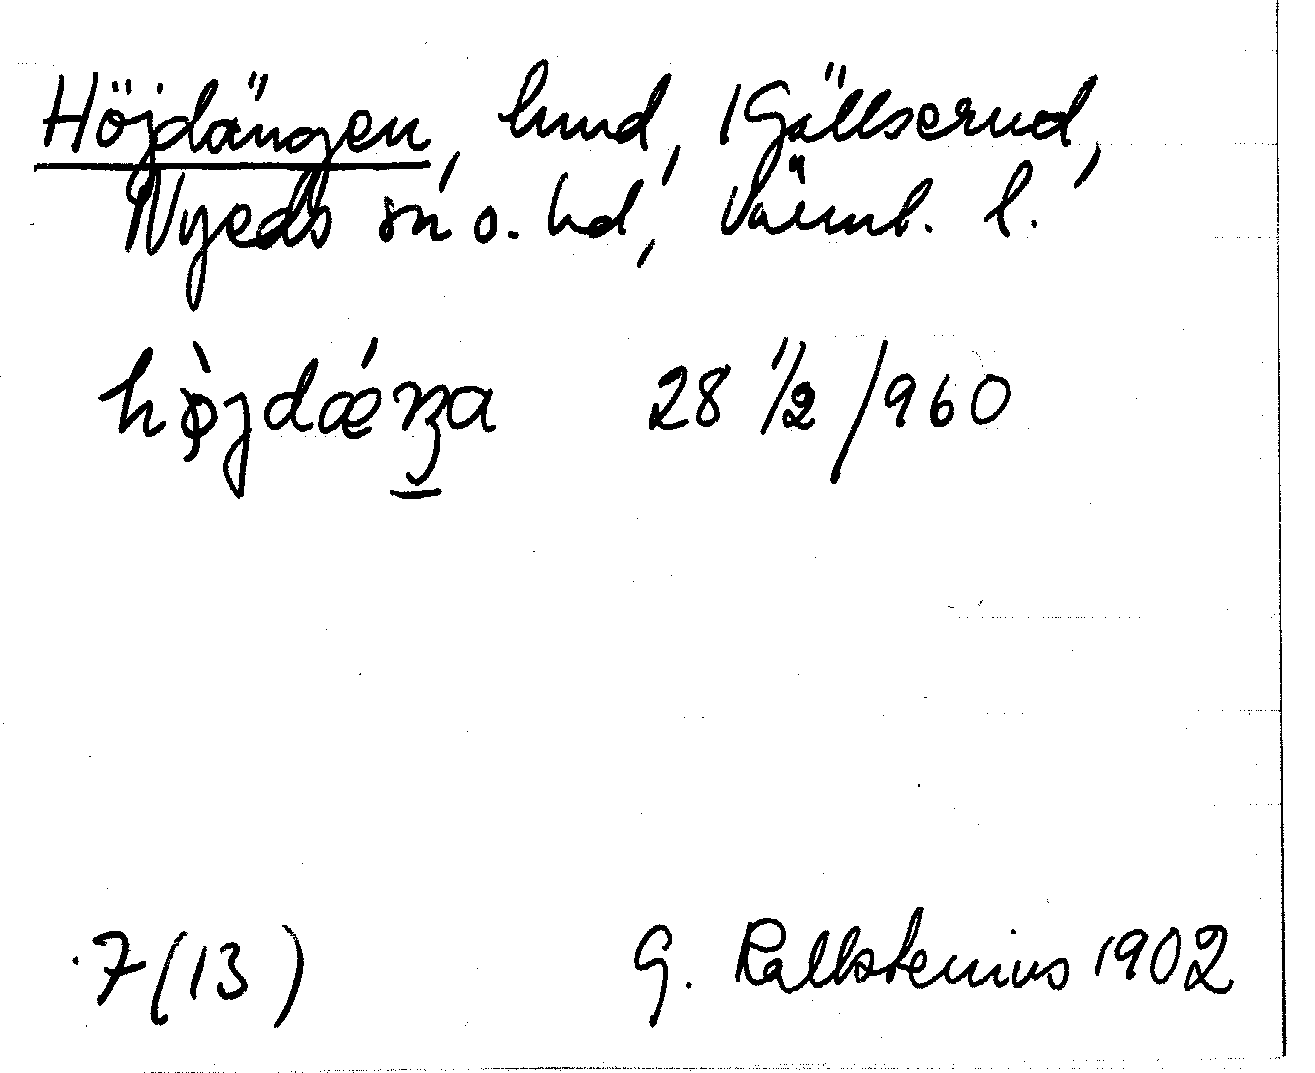 Höjdängen, hmd, Gällserud,
Nyeds sn o. hd, Värml. l.
hø̀jdǽŋa 28 1/2 /960
7(13) G. Kallstenius 1902